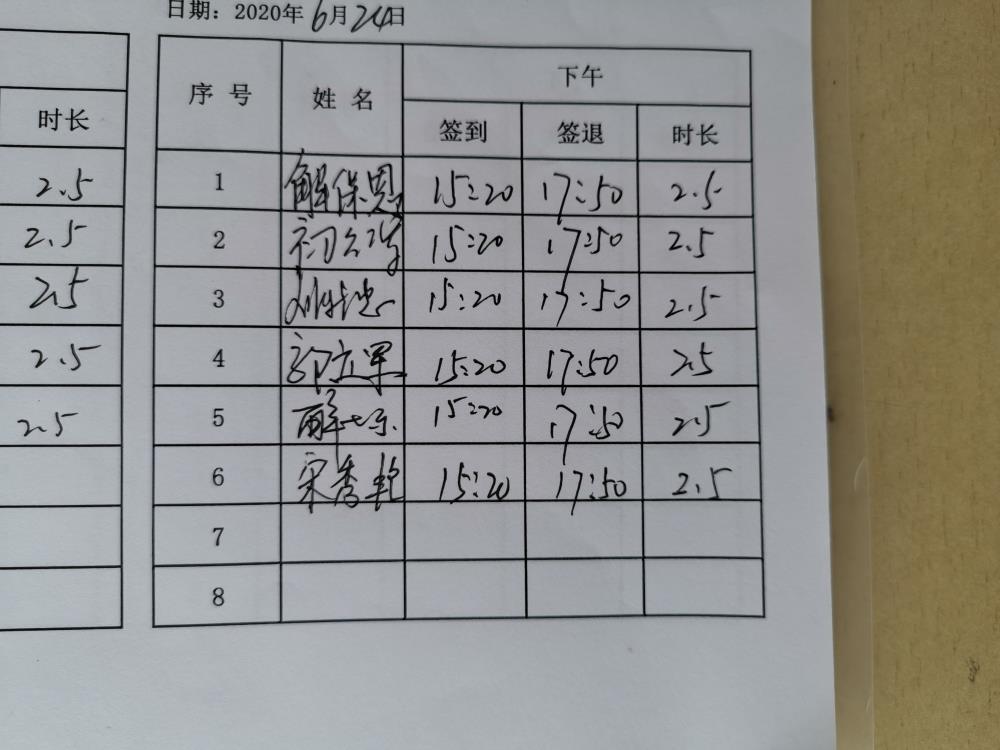 日期：2020年6月24日
时长
2.5
2.5
2.5
2.5
2.5
序号 姓名 下午
签到 签退 时长
1 解保恩 15:20 17:50 2.5
2 15:20 17:50 2.5
3 15:20 17:50 2.5
4 郭立军 15:20 17:50 2.5
5 15:20 17:50 2.5
6 宋秀艳 15:20 17:50 2.5
7
8